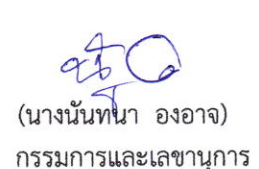 (นางนันทนา องอาจ)
กรรมการและเลขานุการ